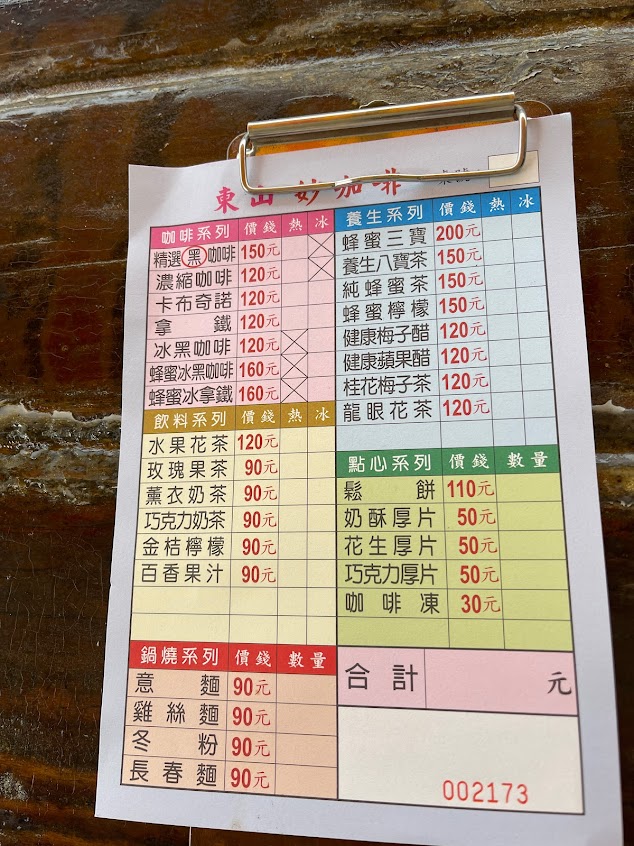 東山妙咖啡
桌號
咖啡系列 價錢 熱 冰
精選黑咖啡 150元
濃縮咖啡 120元
卡布奇諾 120元
拿鐵 120元
冰黑咖啡 120元
蜂蜜冰黑咖啡 160元
蜂蜜冰拿鐵 160元
飲料系列 價錢 熱 冰
水果花茶 120元
玫瑰果茶 90元
薰衣奶茶 90元
巧克力奶茶 90元
金桔檸檬 90元
百香果汁 90元
鍋燒系列 價錢 數量
意麵 90元
雞絲麵 90元
冬粉 90元
長春麵 90元
養生系列 價錢 熱 冰
蜂蜜三寶 200元
養生八寶茶 150元
純蜂蜜茶 150元
蜂蜜檸檬 150元
健康梅子醋 120元
健康蘋果醋 120元
桂花梅子茶 120元
龍眼花茶 120元
點心系列 價錢 數量
鬆餅 110元
奶酥厚片 50元
花生厚片 50元
巧克力厚片 50元
咖啡凍 30元
合計 元
002173